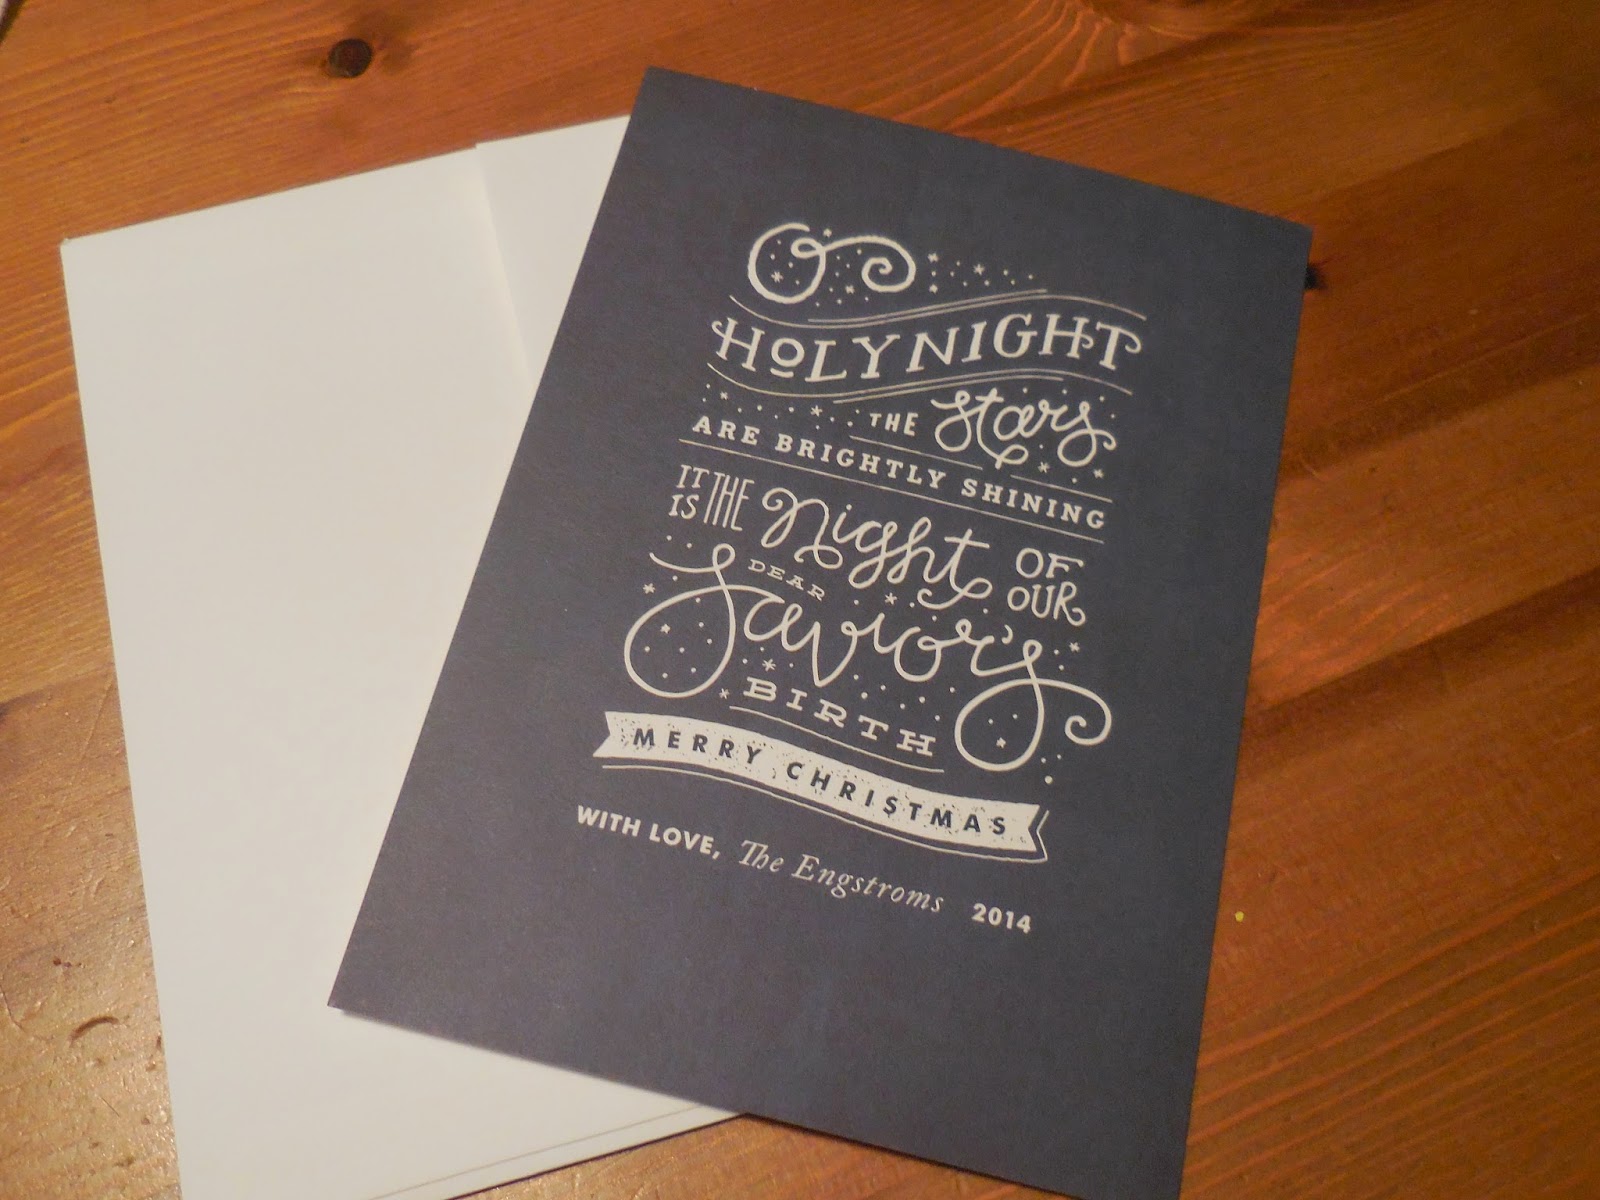 O
HOLY NIGHT
THE Stars
ARE BRIGHTLY SHINING
IT IS THE Night OF OUR
DEAR
Savior's
BIRTH
MERRY CHRISTMAS
WITH LOVE, The Engstroms 2014